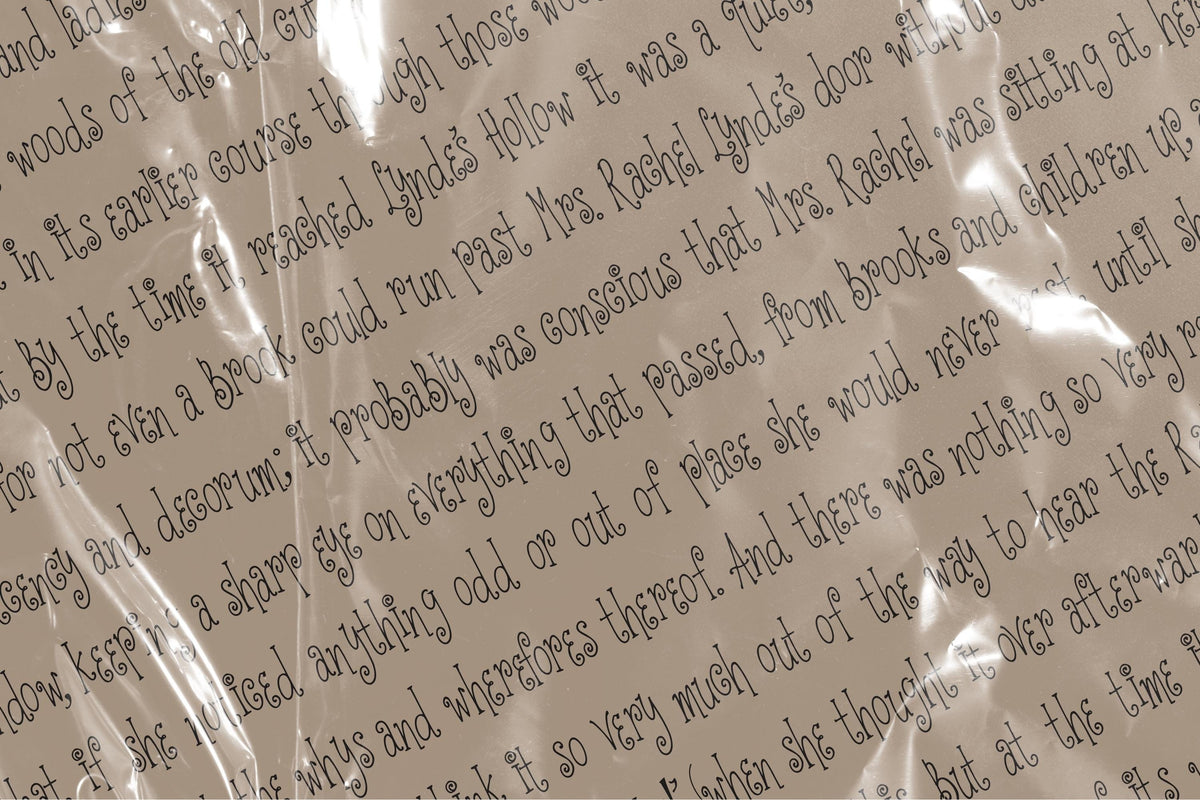 and ladies
woods of the old
in its earlier course through those
by the time it reached Lynde's Hollow it was a quiet,
for not even a brook could run past Mrs. Rachel Lynde's door without
and decorum; it probably was conscious that Mrs. Rachel was sitting at her
keeping a sharp eye on everything that passed, from brooks and children up,
if she noticed anything odd or out of place she would never rest until
the whys and wherefores thereof. And there was nothing so very
it so very much out of the way to hear the
(when she thought it over
but at the time
its